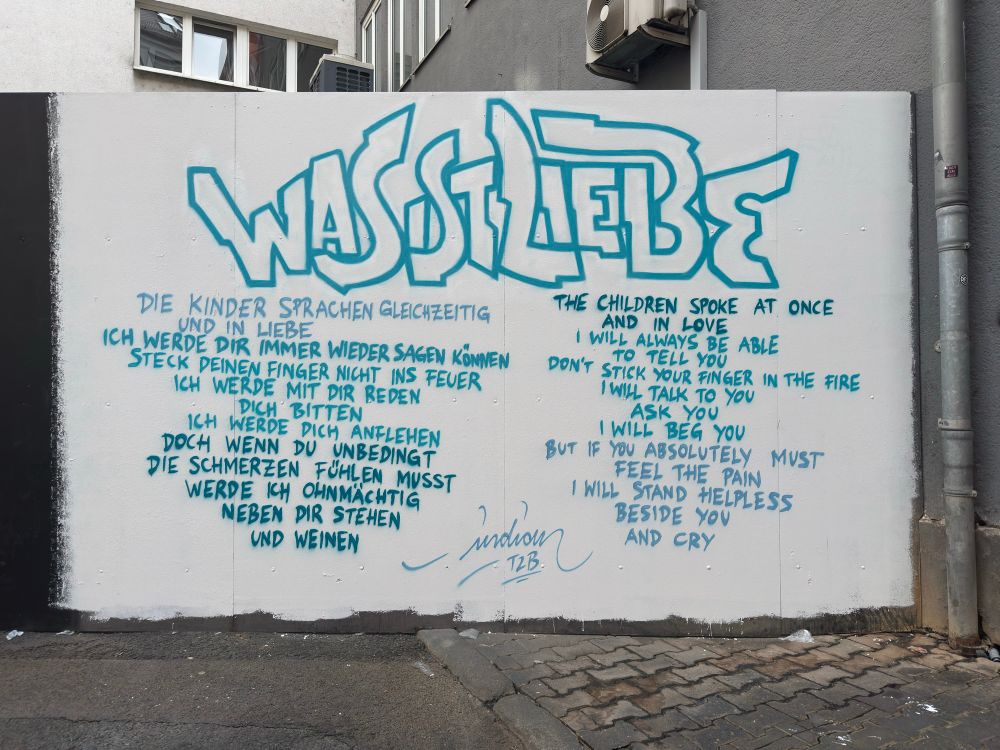 WAS IST LIEBE
DIE KINDER SPRACHEN GLEICHZEITIG
UND IN LIEBE
ICH WERDE DIR IMMER WIEDER SAGEN KÖNNEN
STECK DEINEN FINGER NICHT INS FEUER
ICH WERDE MIT DIR REDEN
DICH BITTEN
ICH WERDE DICH ANFLEHEN
DOCH WENN DU UNBEDINGT
DIE SCHMERZEN FÜHLEN MUSST
WERDE ICH OHNMÄCHTIG
NEBEN DIR STEHEN
UND WEINEN
THE CHILDREN SPOKE AT ONCE
AND IN LOVE
I WILL ALWAYS BE ABLE
TO TELL YOU
DON'T STICK YOUR FINGER IN THE FIRE
I WILL TALK TO YOU
ASK YOU
I WILL BEG YOU
BUT IF YOU ABSOLUTELY MUST
FEEL THE PAIN
I WILL STAND HELPLESS
BESIDE YOU
AND CRY
indian
TZB